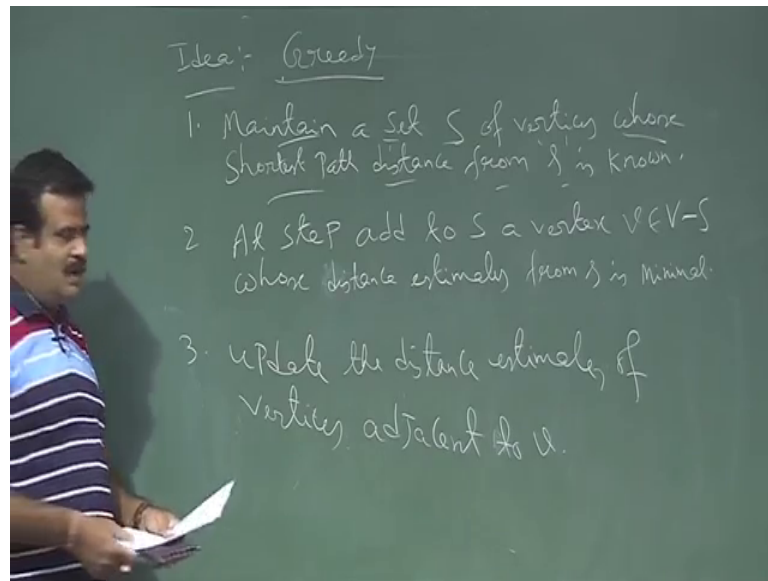 Idea:- Greedy
1. Maintain a set S of vertices whose
Shortest Path distance from s is known.
2 At step add to S a vertex v ∈ V-S
whose distance estimates from s is Minimal.
3. update the distance estimates of
vertices adjacent to v.